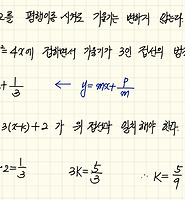 2를 평행이동 시켜도 기울기는 변하지 않는다
²=4x에 접하면서 기울기가 3인 접선의 방
+ 1/3 ← y=mx+p/m
3(x-k)+2 가 위 접선과 일치해야 한다.
2=1/3 3k=5/3 ∴ k=5/9